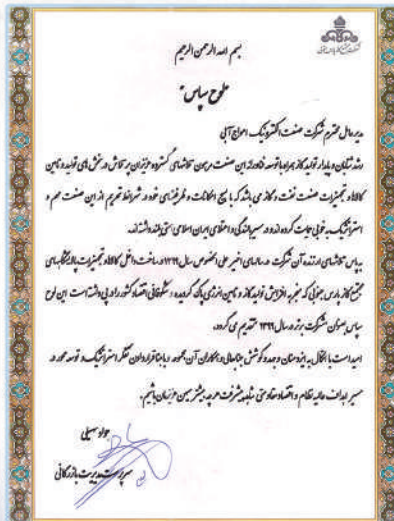 بسم الله الرحمن الرحیم
لوح سپاس
مدیرعامل محترم شرکت صنعت الکترونیک امواج آبی
رشد شتابان و پایدار تولید گاز همراه با توسعه فناورانه این صنعت مرهون تلاشهای گسترده عزیزان پر تلاش در بخش های تولید و تامین
کالا و تجهیزات صنعت نفت و گاز می باشد که با بسیج امکانات و ظرفیتهای خود در شرایط تحریم از این صنعت مهم و
استراتژیک به خوبی حمایت کرده اند و در مسیر بالندگی و اعتلای ایران اسلامی همتی بلند داشته اند.
بپاس تلاشهای ارزنده آن شرکت در سالهای اخیر علی الخصوص سال ۱۳۹۹ در ساخت داخل کالا و تجهیزات پالایشگاههای
مجتمع گاز پارس جنوبی که منجر به افزایش تولید گاز و تامین انرژی پاک گردیده و شکوفائی اقتصاد کشور را در پی داشته است این لوح
سپاس بعنوان شرکت برتر در سال ۱۳۹۹ تقدیم می گردد.
امید است با اتکال به ایزد منان و جد و کوشش جنابعالی و همکاران آن مجموعه و با مبنا قرار دادن تفکر استراتژیک و توسعه محور در
مسیر اهداف عالیه نظام و اقتصاد مقاومتی شاهد پیشرفت هر چه بیشتر میهن عزیزمان باشیم.
جواد سهیلی
سرپرست مدیریت بازرگانی